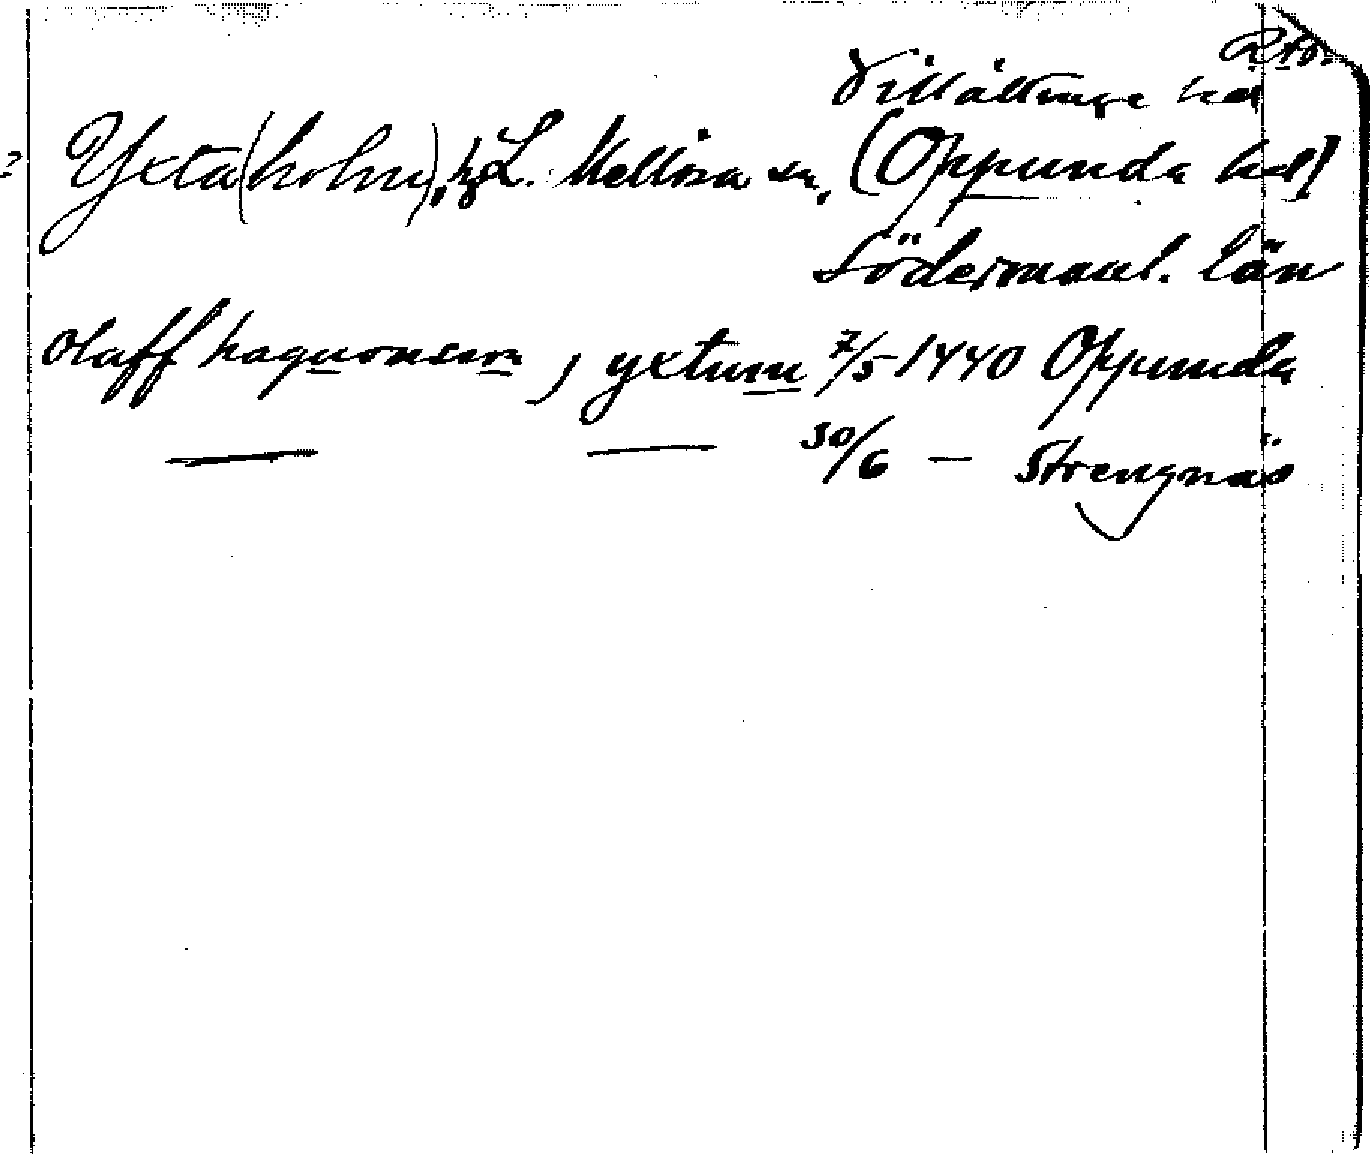 Villåttinge hd
? Yxta(holm), hg L. Mellösa sn, (Oppunda hd)
Södermanl. län
olaff haquonson, j yxtum 7/5 1440 Oppunda
— — 30/6 — Strengnäs